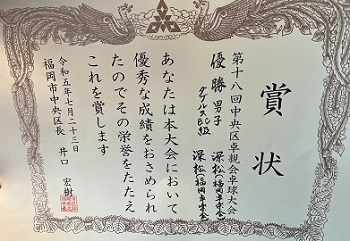 賞状
第十八回中央区卓親会卓球大会
優勝 男子ダブルスBC級
深松(福岡卓栄会)
深松(福岡卓栄会)
あなたは本大会において
優秀な成績をおさめられ
たのでその栄誉をたたえ
これを賞します
令和五年七月二十三日
福岡市中央区長 井口 宏樹